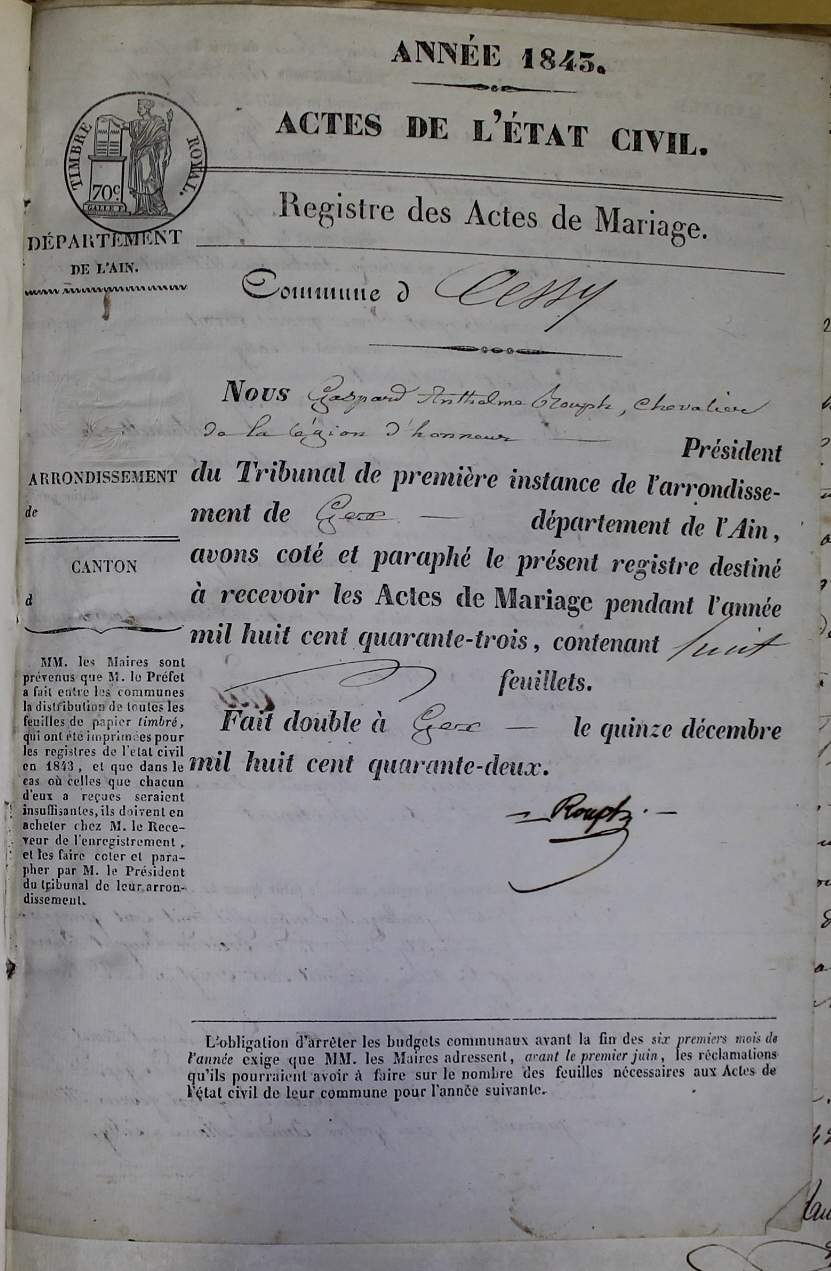 ANNÉE 1843.
ACTES DE L'ÉTAT CIVIL.
TIMBRE ROYAL.
70c
GALLE F.
Registre des Actes de Mariage.
DÉPARTEMENT
DE L'AIN.
Commune d Cessy
Nous Gaspard Anthelme Rouph, chevalier
de la légion d'honneur — Président
du Tribunal de première instance de l'arrondisse-
ment de Gex — département de l'Ain,
avons coté et paraphé le présent registre destiné
à recevoir les Actes de Mariage pendant l'année
mil huit cent quarante-trois, contenant huit
feuillets.
Fait double à Gex — le quinze décembre
mil huit cent quarante-deux.
Rouph
ARRONDISSEMENT
de
CANTON
d
MM. les Maires sont
prévenus que M. le Préfet
a fait entre les communes
la distribution de toutes les
feuilles de papier timbré,
qui ont été imprimées pour
les registres de l'état civil
en 1843, et que dans le
cas où celles que chacun
d'eux a reçues seraient
insuffisantes, ils doivent en
acheter chez M. le Rece-
veur de l'enregistrement,
et les faire coter et para-
pher par M. le Président
du tribunal de leur arron-
dissement.
L'obligation d'arrêter les budgets communaux avant la fin des six premiers mois de
l'année exige que MM. les Maires adressent, avant le premier juin, les réclamations
qu'ils pourraient avoir à faire sur le nombre des feuilles nécessaires aux Actes de
l'état civil de leur commune pour l'année suivante.